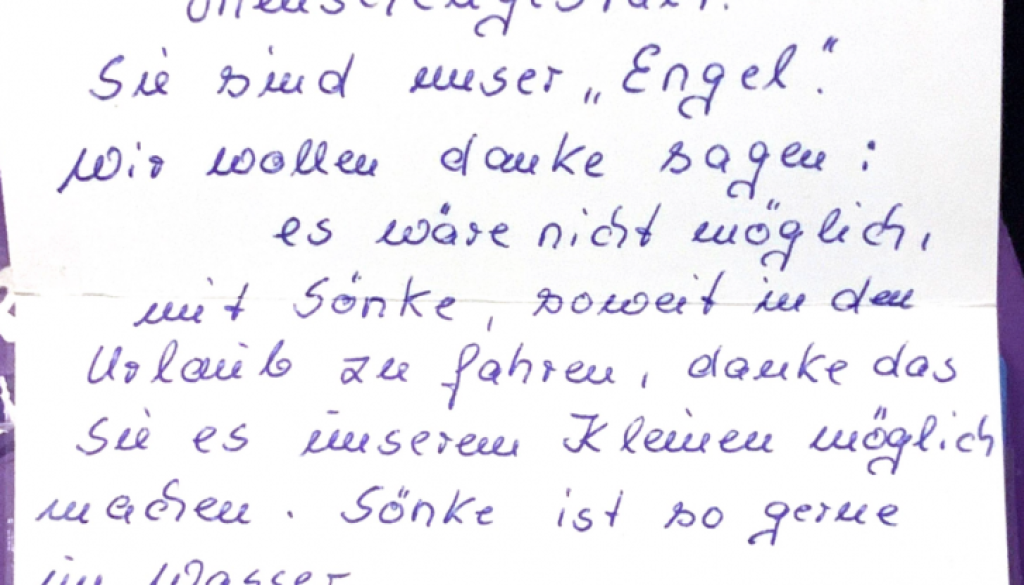 Sie sind unser „Engel“.
Wir wollen danke sagen:
es wäre nicht möglich,
mit Sönke, soweit in den
Urlaub zu fahren, danke das
Sie es unserem Kleinen möglich
machen. Sönke ist so gerne
im Wasser